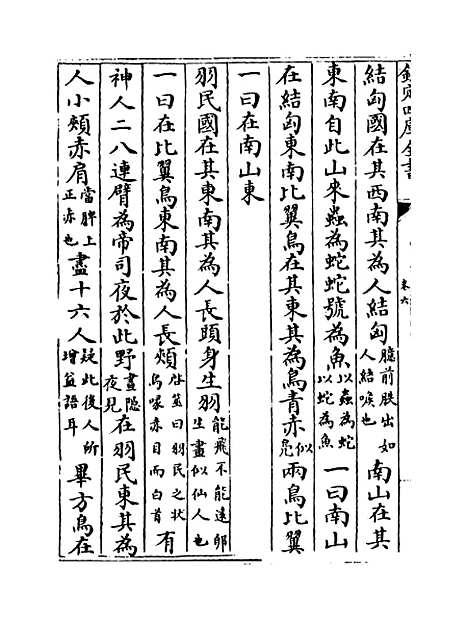 欽定四庫全書
卷六
結匈國在其西南其為人結匈臆前胅出如人結喉也南山在其
東南自此山來蟲為蛇蛇號為魚以蟲為蛇以蛇為魚一曰南山
在結匈東南比翼鳥在其東其為鳥青赤似鳧兩鳥比翼
一曰在南山東
羽民國在其東南其為人長頭身生羽能飛不能遠卵生畫似仙人也
一曰在比翼鳥東南其為人長頰啓筮曰羽民之狀鳥喙赤目而白首有
神人二八連臂為帝司夜於此野晝隱夜見在羽民東其為
人小頰赤肩當脾上正赤也盡十六人疑此後人所增益語耳畢方鳥在